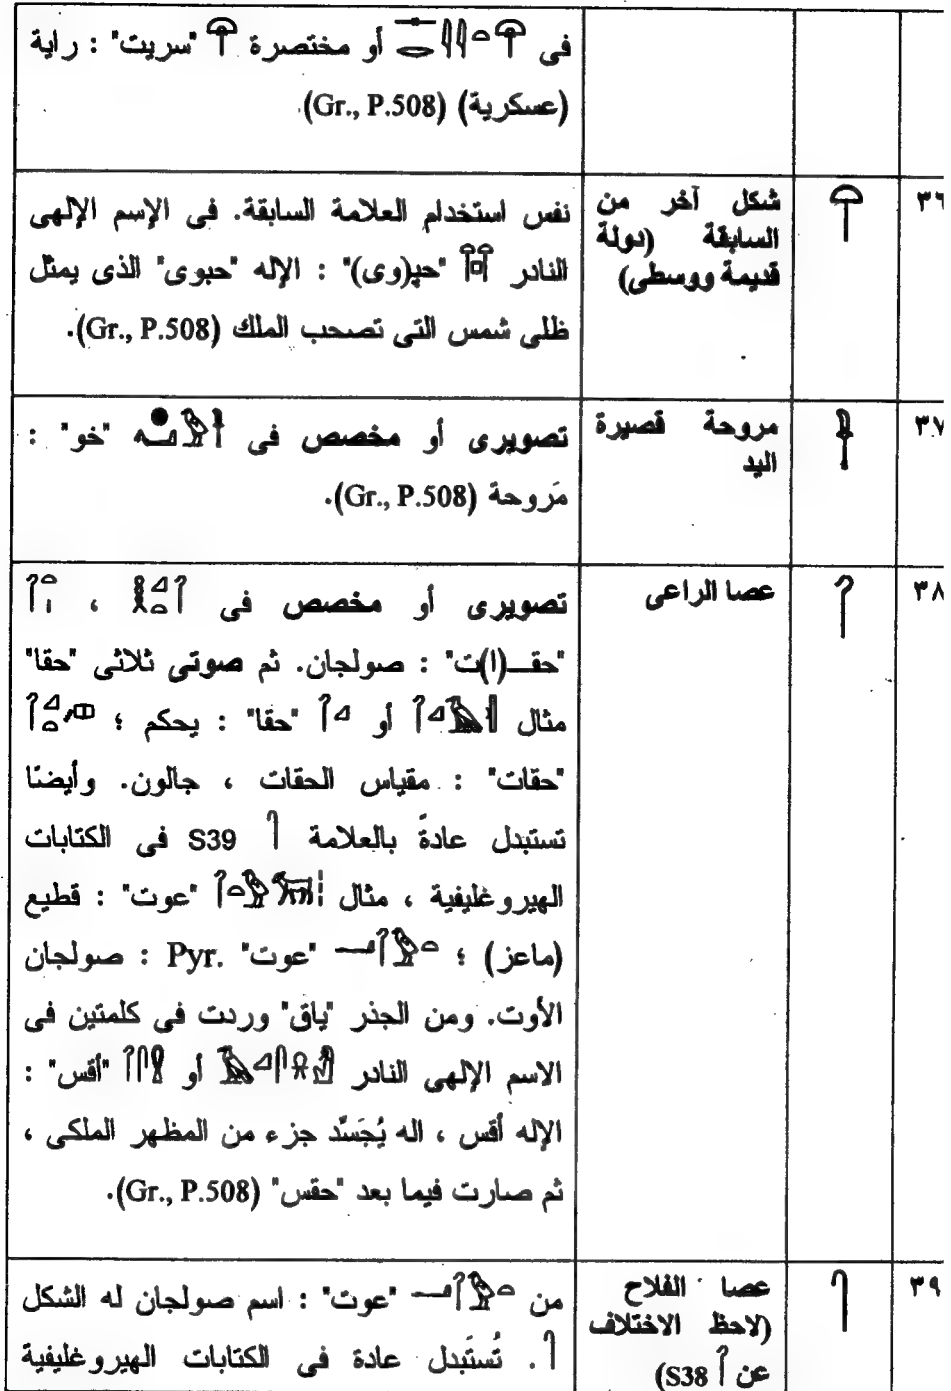 فى أو مختصرة "سريت" : راية
(عسكرية) (Gr., P.508).
٣٦
شكل آخر من
السابقة (دولة
قديمة ووسطى)
نفس استخدام العلامة السابقة. فى الإسم الإلهى
النادر "حپ(وى)" : الإله "حبوى" الذى يمثل
ظلى شمس التى تصحب الملك (Gr., P.508).
٣٧
مروحة قصيرة
اليد
تصويرى أو مخصص فى "خو" :
مَروحة (Gr., P.508).
٣٨
عصا الراعى
تصويرى أو مخصص فى ،
"حقـــ(ا)ت" : صولجان. ثم صوتى ثلاثى "حقا"
مثال أو "حقا" : يحكم ؛
"حقات" : مقياس الحقات ، جالون. وأيضًا
تستبدل عادةً بالعلامة S39 فى الكتابات
الهيروغليفية ، مثال "عوت" : قطيع
(ماعز) ؛ "عوت" Pyr. : صولجان
الأوت. ومن الجذر "ياق" وردت فى كلمتين فى
الاسم الإلهى النادر أو "أقس" :
الإله أقس ، اله يُجَسِّد جزء من المظهر الملكى ،
ثم صارت فيما بعد "حقس" (Gr., P.508).
٣٩
عصا الفلاح
(لاحظ الاختلاف
عن S38)
من "عوت" : اسم صولجان له الشكل
. تُستَبدل عادة فى الكتابات الهيروغليفية